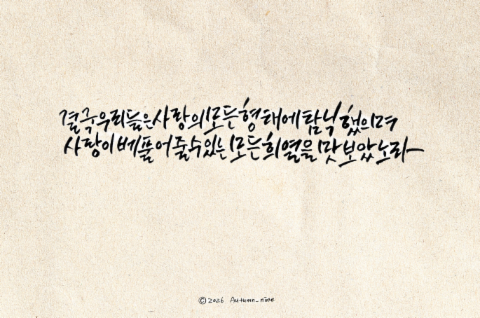 결국 우리들은 사랑의 모든 형태에 탐닉했으며
사랑이 베풀어 줄 수 있는 모든 희열을 맛보았노라
©2026 Autumn_nine